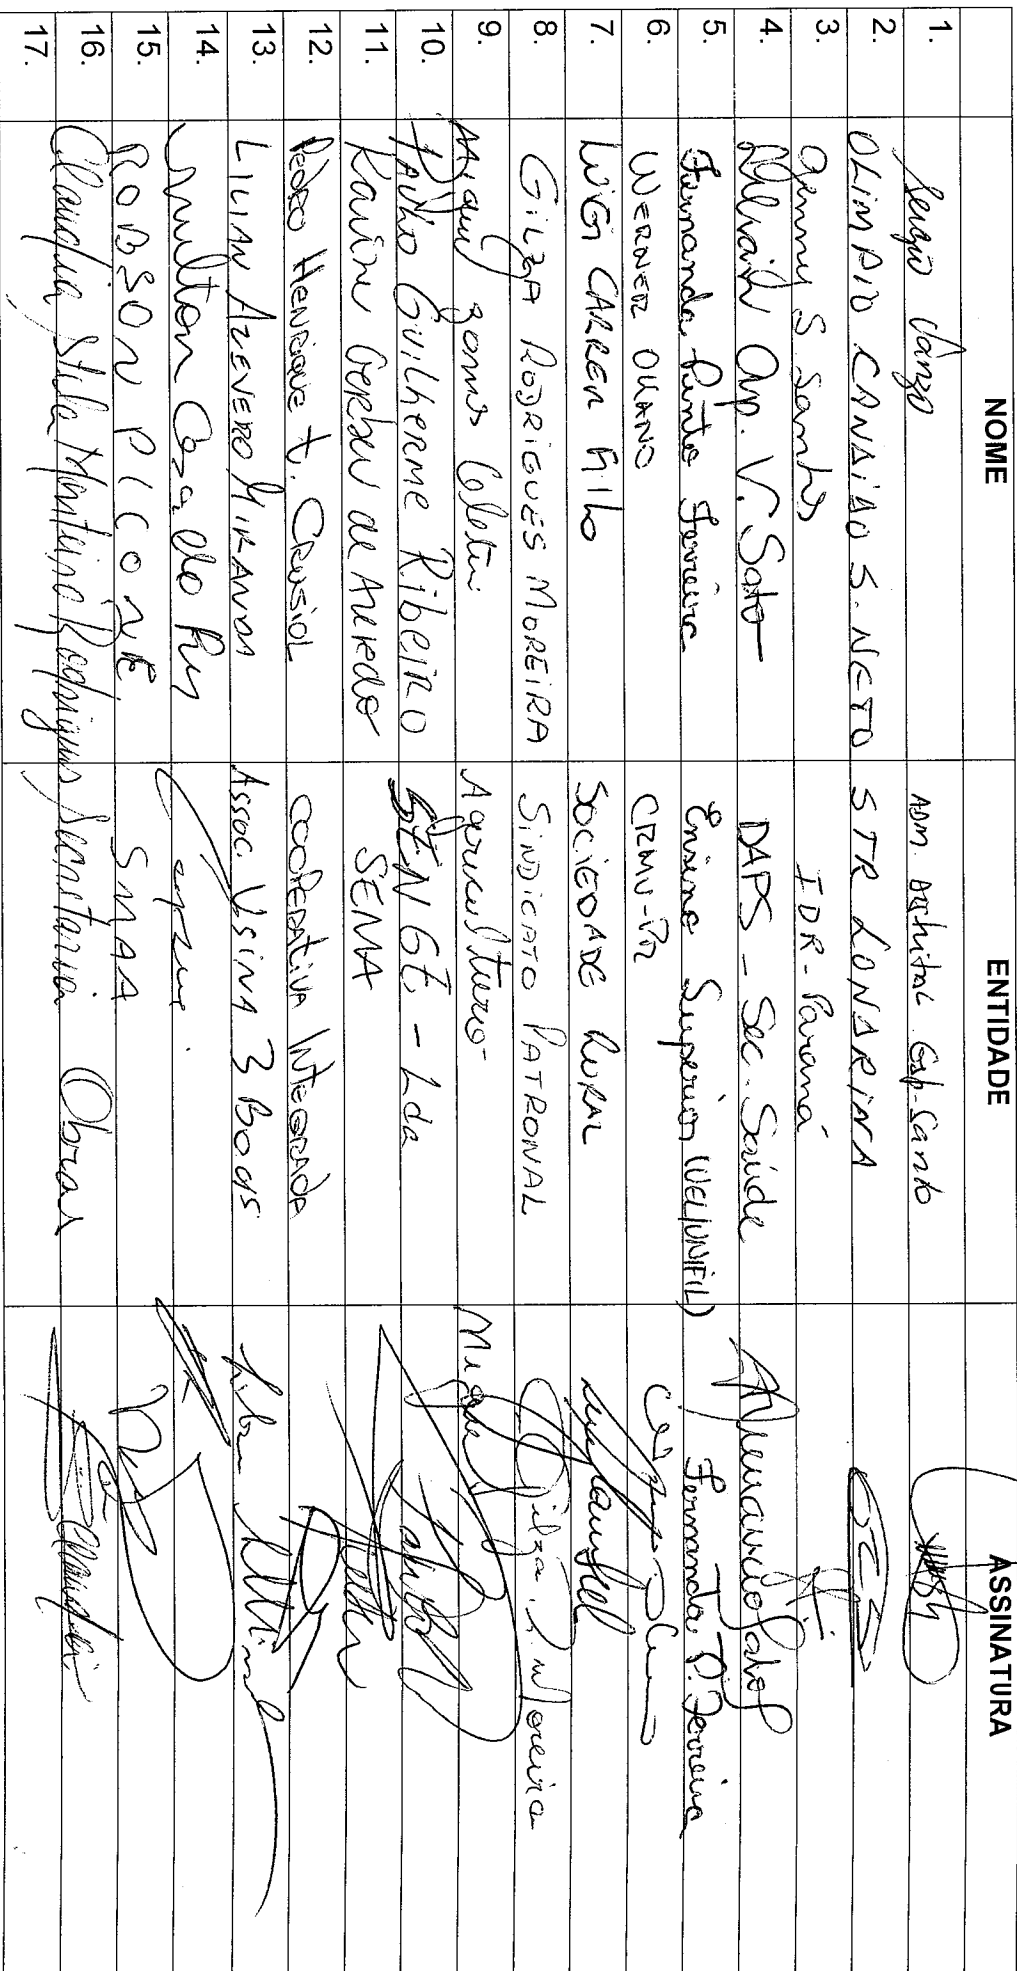 NOME ENTIDADE ASSINATURA
1. Sergio Vanzo ADM. Distrital Esp. Santo
2. OLIMPIO CANDIDO S. NETO STR LONDRINA
3. S Santos IDR-Paraná
4. Ap. V. Sato DAPS - Sec. Saúde
5. Fernanda Pinto Ferreira Ensino Superior (UEL/UNIFIL) Fernanda P. Ferreira
6. WERNER OKANO CRMV-PR
7. LUIGI CARRER FILHO SOCIEDADE RURAL
8. GILZA RODRIGUES MOREIRA SINDICATO PATRONAL Gilza R. Moreira
9. Miguel Gomes
10. PAULO GUILHERME RIBEIRO - Lda
11. Karine Gerber de Azevedo SEMA
12. PEDRO HENRIQUE T. CRUSIOL COOPERATIVA INTEGRADA
13. LILIAN AZEVEDO MIRANDA ASSOC. USINA 3 BOCAS
14.
15. ROBSON PICONE SMAA
16. Claudia Stela Monteiro Rodrigues Secretaria Obras
17.